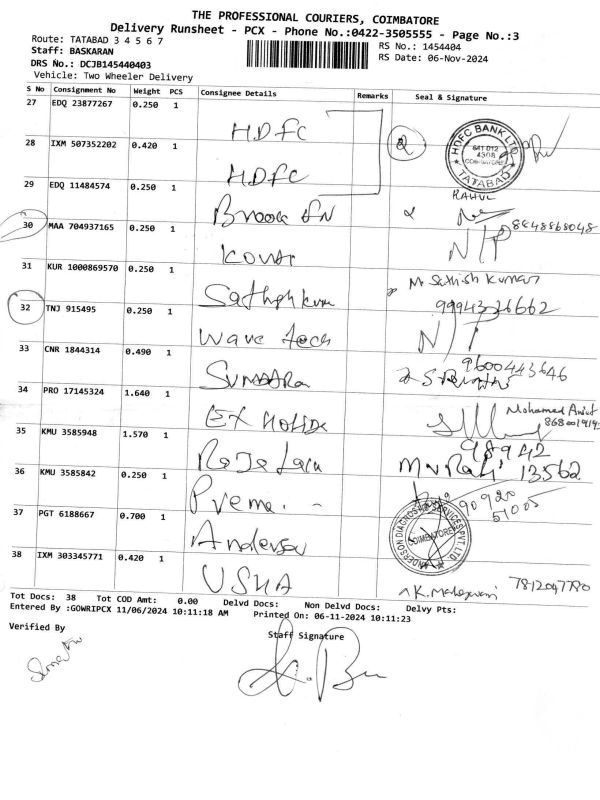 THE PROFESSIONAL COURIERS, COIMBATORE
Delivery Runsheet - PCX - Phone No.:0422-3505555 - Page No.:3
Route: TATABAD 3 4 5 6 7
RS No.: 1454404
Staff: BASKARAN
RS Date: 06-Nov-2024
DRS No.: DCJB145440403
Vehicle: Two Wheeler Delivery
S No Consignment No Weight PCS Consignee Details Remarks Seal & Signature
27 EDQ 23877267 0.250 1 HDFC
HDFC BANK LTD
641 012
4308
COIMBATORE
TATABAD
28 IXM 507352202 0.420 1 HDFC
RAHUL
29 EDQ 11484574 0.250 1
8848868048
30 MAA 704937165 0.250 1 N/P
31 KUR 1000869570 0.250 1 Sathish Kumar M. Sathish Kumar
9994326662
32 TNJ 915495 0.250 1 Wave tech N/P
9600443646
33 CNR 1844314 0.490 1
34 PRO 17145324 1.640 1 Mohamed
35 KMU 3585948 1.570 1
98942
13562
36 KMU 3585842 0.250 1 Prema
90920
51005
37 PGT 6188667 0.700 1 Anderson
ANDERSON DIAGNOSTIC SERVICES PVT. LTD.
COIMBATORE
38 IXM 303345771 0.420 1 USHA K. 7812047790
Tot Docs: 38 Tot COD Amt: 0.00 Delvd Docs: Non Delvd Docs: Delvy Pts:
Entered By :GOWRIPCX 11/06/2024 10:11:18 AM Printed On: 06-11-2024 10:11:23
Verified By
Staff Signature